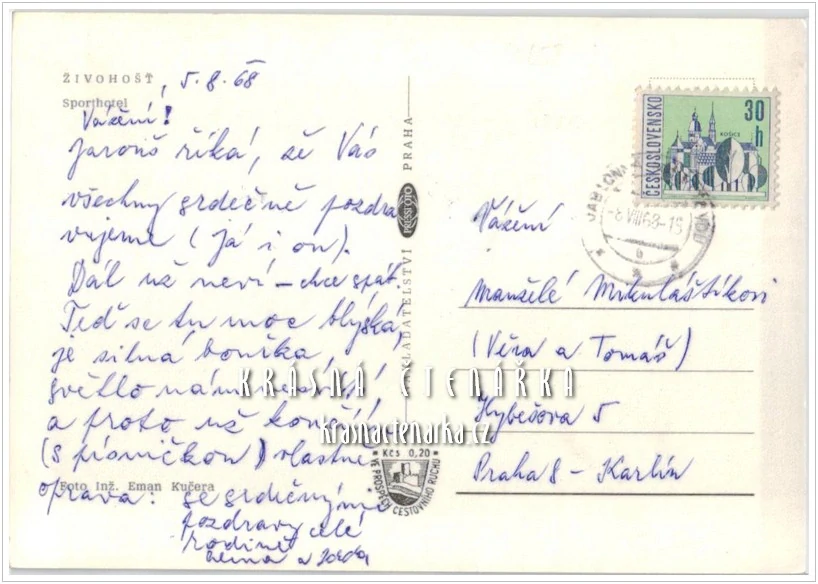 ŽIVOHOŠŤ
Sporthotel
, 5.8.68
Vážení!
Jarouš říká, že Vás
všechny srdečně pozdra
vujeme (já i on).
Dál už neví – chce spát.
Teď se tu moc blýská,
je silná bouřka,
světlo nám
a proto už končí
(s písničkou) vlastně
oprava: se srdečnými
pozdravy celé
rodině
a
Foto Inž. Eman Kučera
NAKLADATELSTVÍ PRESSFOTO PRAHA
Kčs 0,20
VE PROSPĚCH CESTOVNÍHO RUCHU
ČESKOSLOVENSKO
30 h
KOŠICE
-6.VIII.68-15
Vážení
manželé Mikuláštíkovi
(Věra a Tomáš)
Hybešova 5
Praha 8 – Karlín
KRÁSNÁ ČTENÁŘKA
krasnactenarka.cz